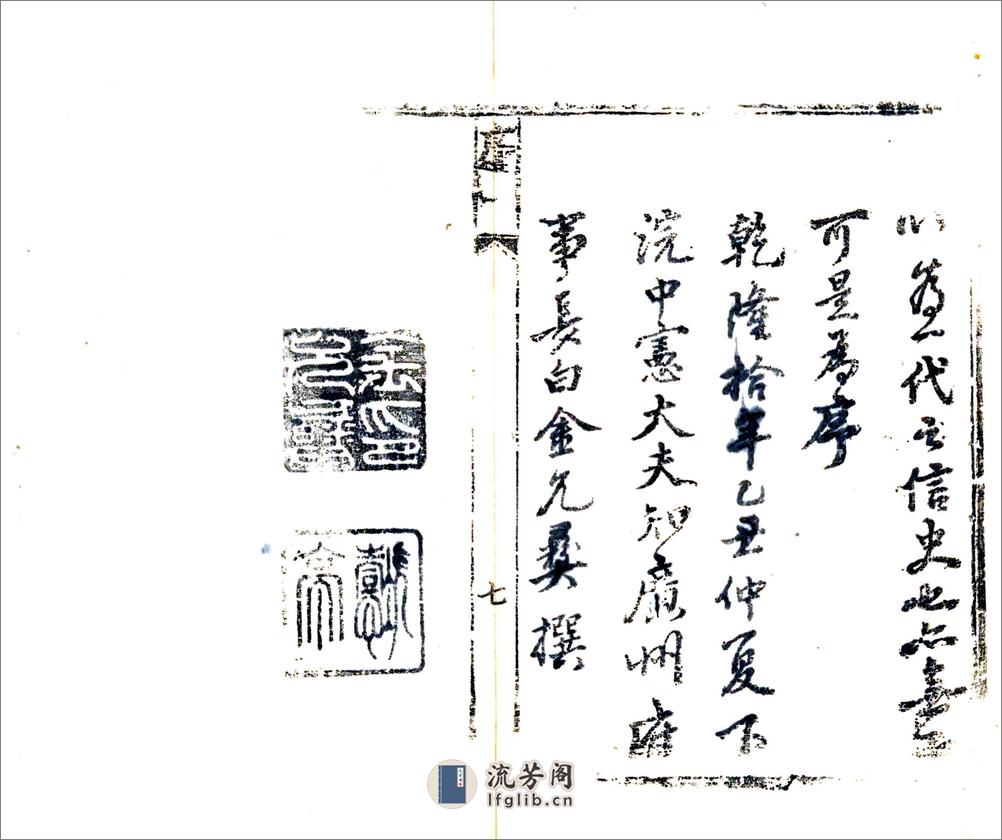 以為一代之信史也亦喜
可是為序
乾隆拾年乙丑仲夏下
浣中憲大夫知廣州府
事長白金允彝撰
序
七
金印
允彝
亭
流芳阁
lfglib.cn